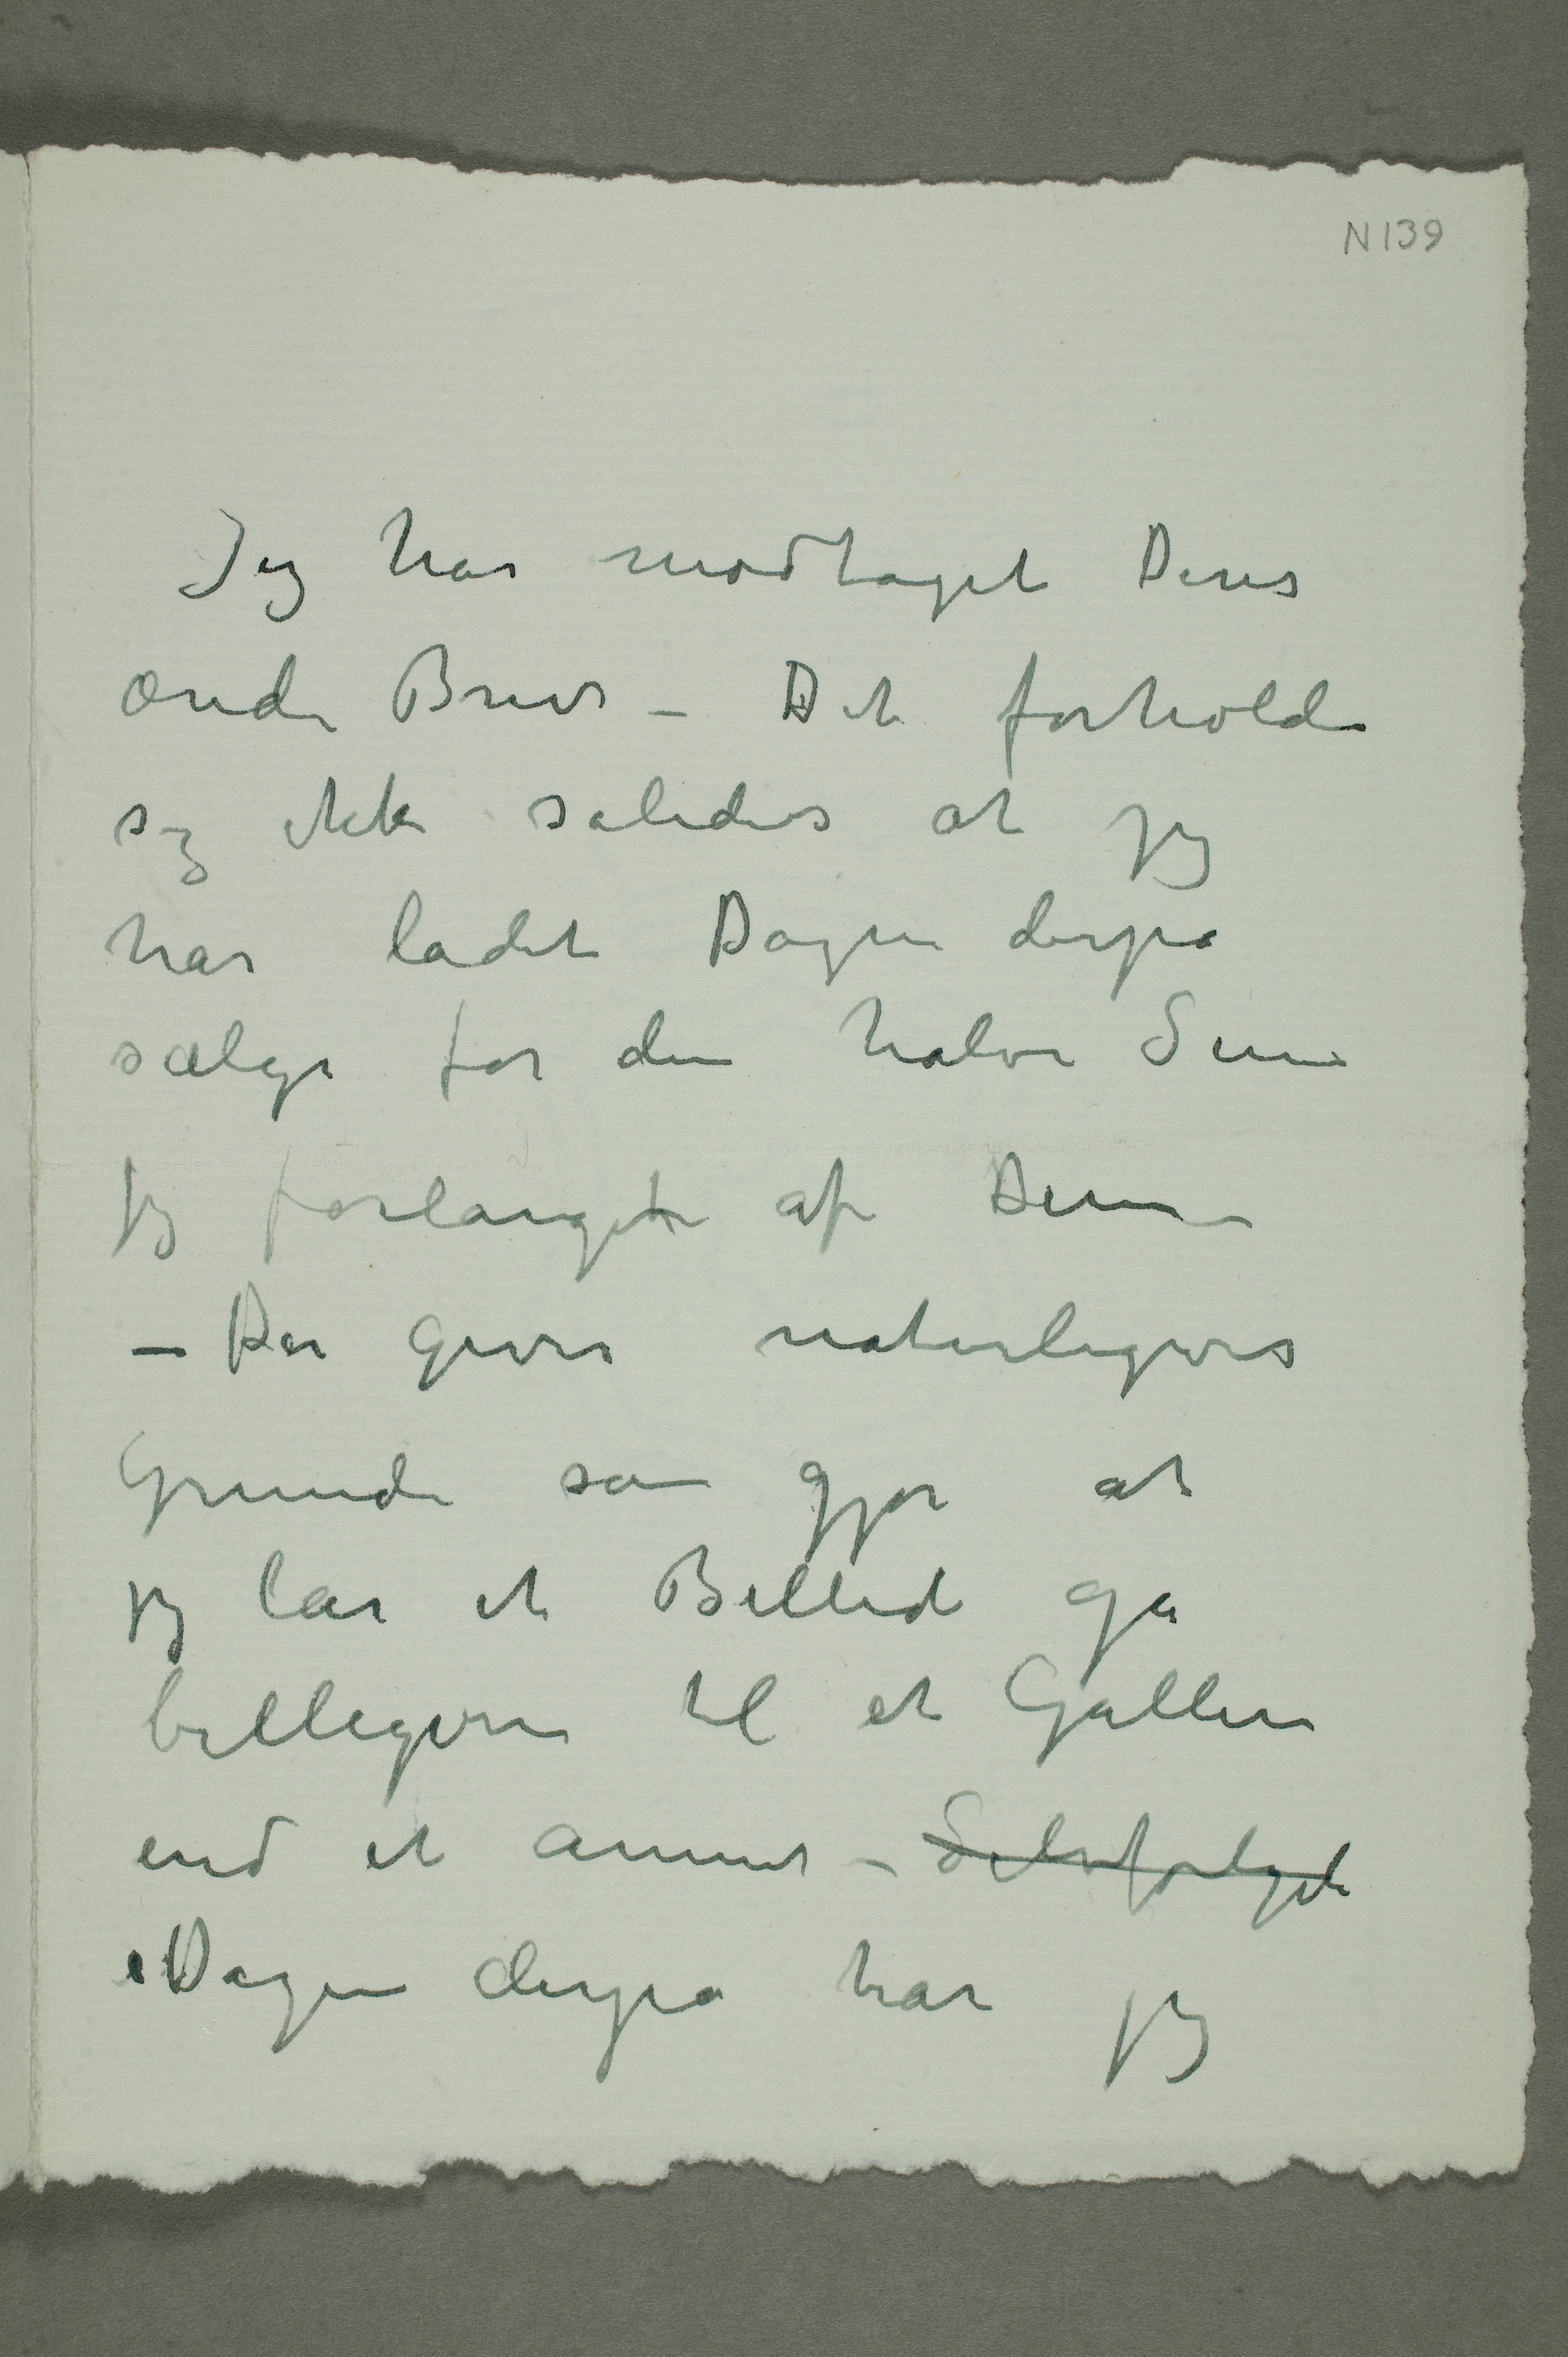 N 139
Jeg har modtaget Deres
ærede Brev – Det forholder
sig ikke således at jeg
har ladet Dagen derpå
sælge for den halve Sum
jeg forlangte af Dem
– Der gives naturligvis
Grunde som gjør at
jeg lar et Billed gå
billigere til et Galleri
end et annet – Selvfølgelig
Dagen derpå har jeg